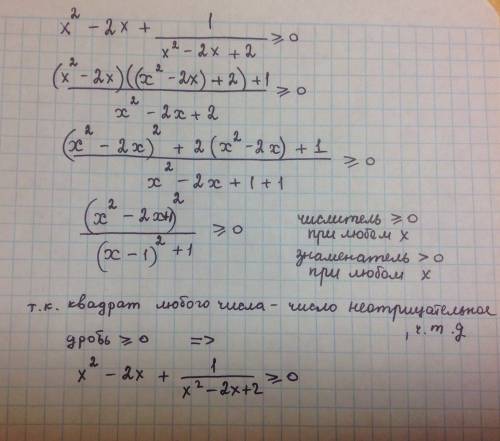 x² - 2x + 1/(x² - 2x + 2) ≥ 0
(x² - 2x)((x² - 2x) + 2) + 1 / x² - 2x + 2 ≥ 0
(x² - 2x)² + 2(x² - 2x) + 1 / x² - 2x + 1 + 1 ≥ 0
(x² - 2x+1)² / (x - 1)² + 1 ≥ 0
числитель ≥ 0
при любом x
знаменатель > 0
при любом x
т.к. квадрат любого числа - число неотрицательное
дробь ≥ 0 => , ч.т.д
x² - 2x + 1/(x² - 2x + 2) ≥ 0